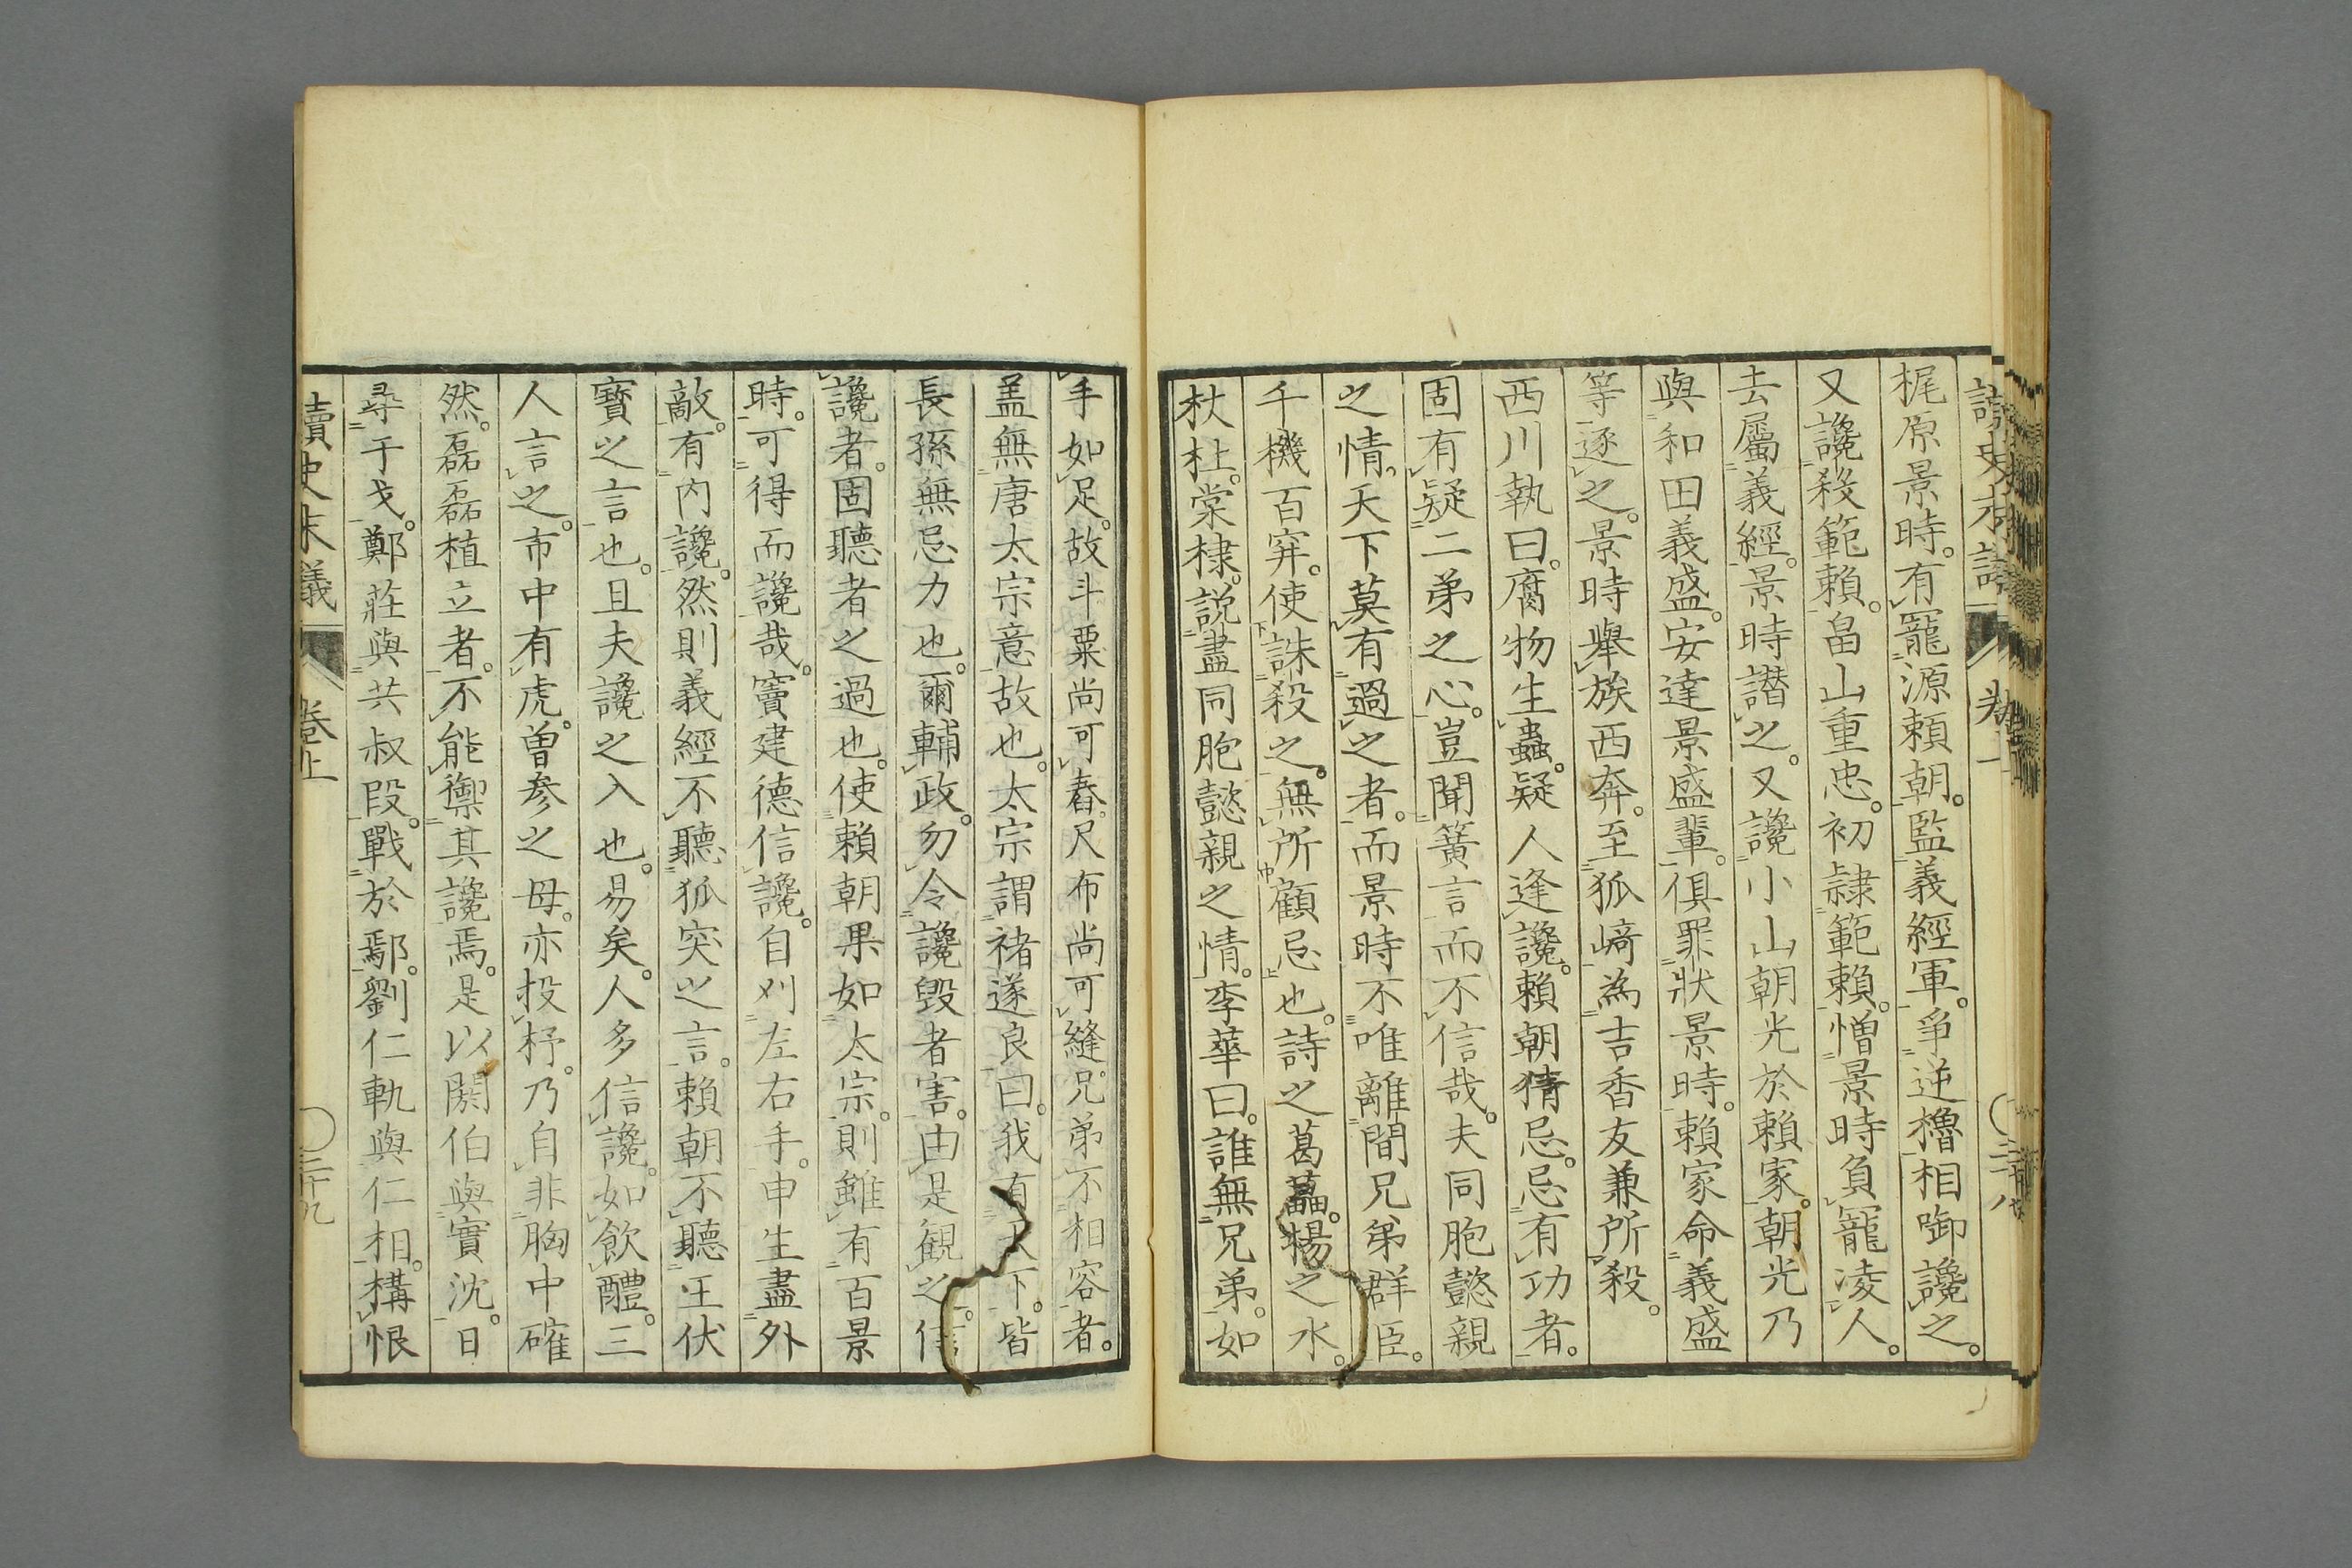 梶原景時。有寵源頼朝。監義經軍。爭逆櫓相啣讒之。
又讒殺範頼。畠山重忠。初隷範頼。憎景時負寵凌人。
去屬義經。景時譖之。又讒小山朝光於頼家。朝光乃
與和田義盛。安達景盛輩。倶罪狀景時。頼家命義盛
等逐之。景時擧族西奔。至狐﨑為吉香友兼所殺。
西川執曰。腐物生蟲。疑人逢讒。頼朝猜忌。忌有功者。
固有疑二弟之心。豈聞簧言而不信哉。夫同胞懿親
之情。天下莫有過之者。而景時不唯離間兄弟群臣。
千機百穽。使誅殺之。無所顧忌也。詩之葛藟。楊之水。
杕杜。棠棣。説盡同胞懿親之情。李華曰。誰無兄弟。如
手如足。故斗粟尚可舂。尺布尚可縫。兄弟不相容者。
盖無唐太宗意故也。太宗謂禇遂良曰。我有天下。皆
長孫無忌力也。爾輔政。勿令讒毀者害。由是観之。信
讒者。固聽者之過也。使頼朝果如太宗。則雖有百景
時。可得而讒哉。竇建德信讒。自刈左右手。申生盡外
敵。有内讒。然則義經不聽狐突之言。頼朝不聽王伏
寶之言也。且夫讒之入也。易矣。人多信讒。如飲醴。三
人言之。市中有虎。曽参之母。亦投杼。乃自非胸中確
然。磊磊植立者。不能禦其讒焉。是以閼伯與實沈。日
尋干戈。鄭莊與共叔段。戰於鄢。劉仁軌與仁相。構恨
讀史末議 卷上 二十九